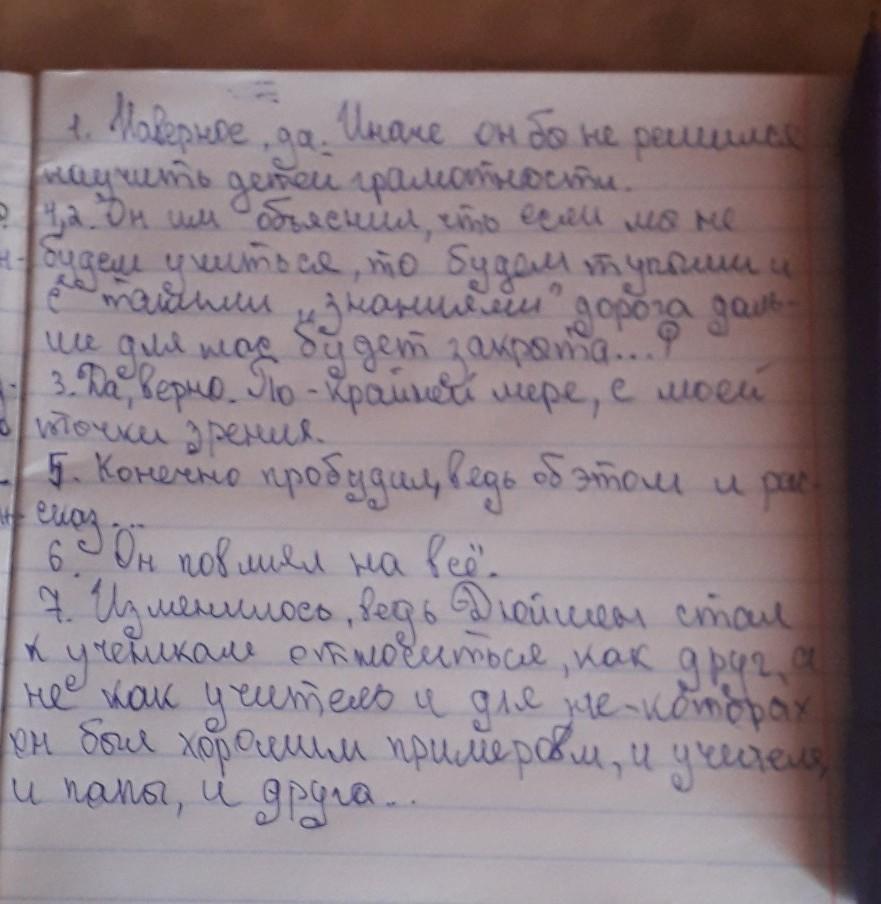 1. Наверное, да. Иначе он бы не решился
научить детей грамотности.
4,2. Он им объяснил, что если мы не
будем учиться, то будем тупыми и
с такими „знаниями" дорога даль-
ше для нас будет закрыта...
3. Да, верно. По-крайней мере, с моей
точки зрения.
5. Конечно пробудил, ведь об этом и рас-
сказ...
6. Он повлиял на всё.
7. Изменилось, ведь Дюйшен стал
к ученикам относиться, как друг, а
не как учитель и для не-которых
он был хорошим примером, и учителя,
и папы, и друга...